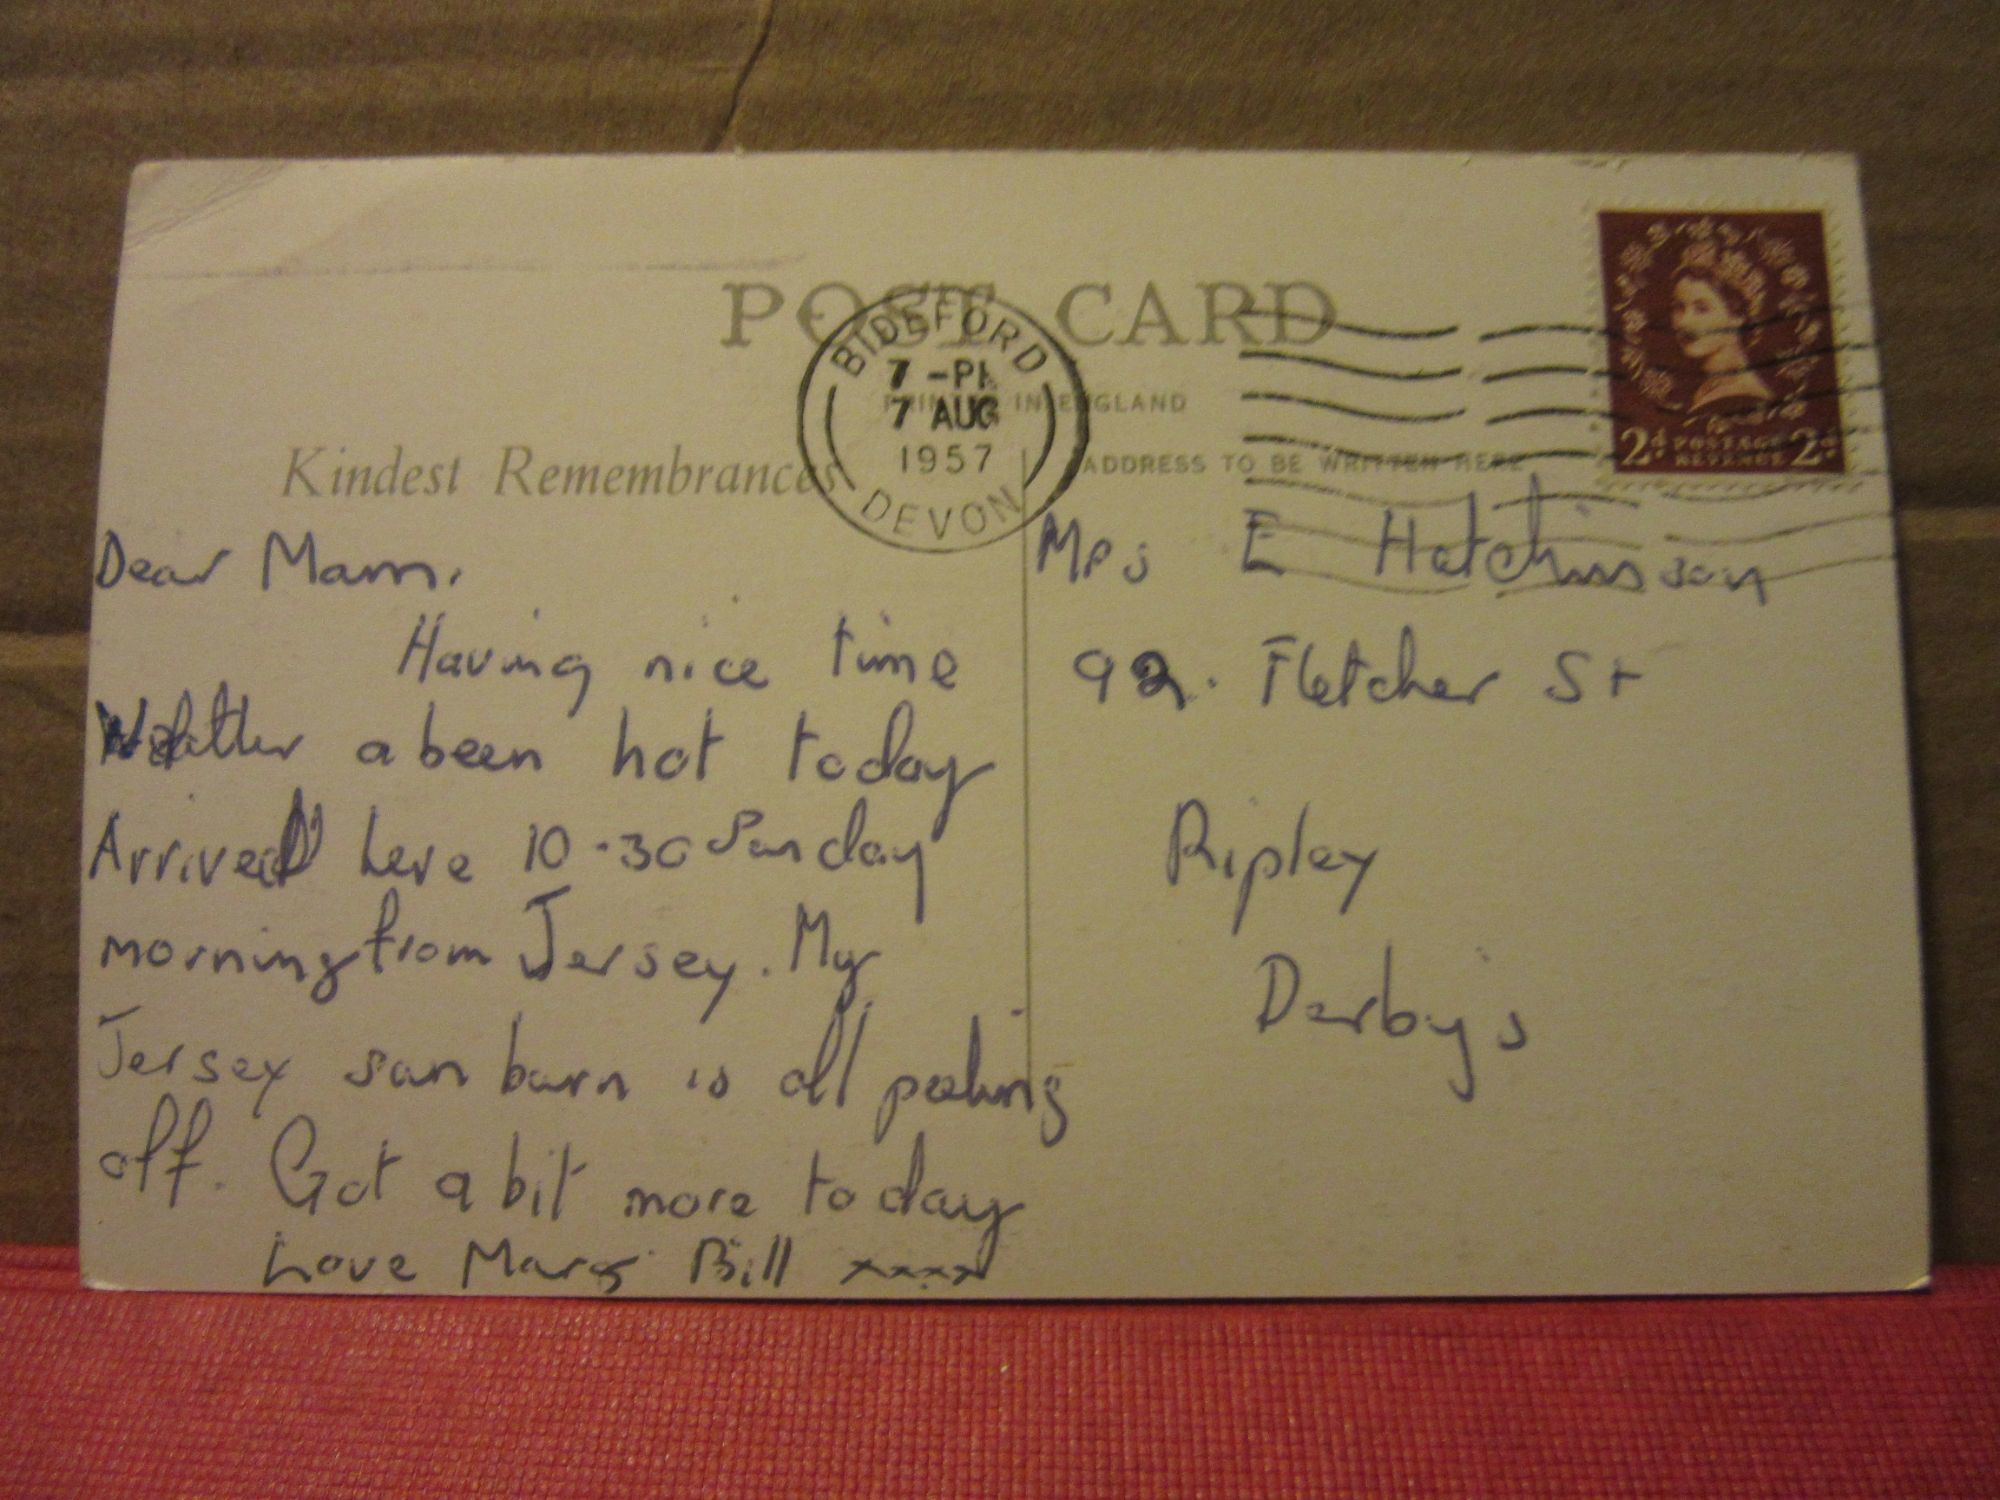 POST CARD
BIDEFORD
7 - PM
7 AUG
1957
DEVON
PRINTED IN ENGLAND
Kindest Remembrances
ADDRESS TO BE WRITTEN HERE
2d POSTAGE 2d
REVENUE
Dear Mam.
Having nice time
Weather a been hot today
Arrived here 10-30 Sunday
morning from Jersey. My
Jersey sun burn is all peeling
off. Got a bit more today
Love Marg Bill xxxx
Mrs E Hutchinson
92. Fletcher St
Ripley
Derbys